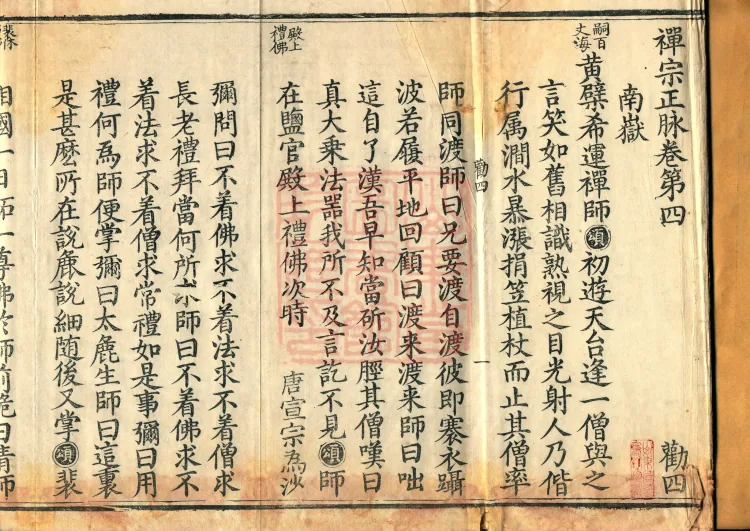 禪宗正脉卷第四 勸四
南嶽
嗣百丈海
黄檗希運禪師頌初遊天台逢一僧與之
言笑如舊相識熟視之目光射人乃偕
行属澗水暴漲捐笠植杖而止其僧率
勸四 一
師同渡師曰兄要渡自渡彼即褰衣躡
波若履平地回顧曰渡来渡来師曰咄
這自了漢吾早知當斫汝脛其僧嘆曰
真大乗法噐我所不及言訖不見頌師
殿上禮佛
在鹽官殿上禮佛次時 唐宣宗為沙
彌問曰不着佛求不着法求不着僧求
長老禮拜當何所求師曰不着佛求不
着法求不着僧求常禮如是事彌曰用
禮何為師便掌彌曰太麁生師曰這裏
是甚麽所在說麁說細随後又掌頌裴
相國一日拓一尊佛於師前跪曰請師